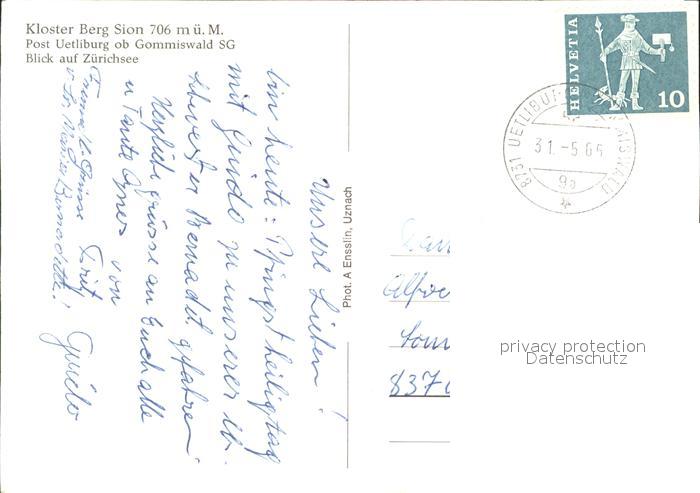 Kloster Berg Sion 706 m ü. M.
Post Uetliburg ob Gommiswald SG
Blick auf Zürichsee
HELVETIA
10
8731 UETLIBURG
31.-5.65
9a
Phot. A Ensslin, Uznach
Unsere Lieben!
bin heute: Pfingstheiligtag
mit Guido zu unserer lb.
Schwester Bernadet gefahren
Herzliche Grüsse an Euch alle
u Tante Agnes von
Guido
Fritz
v Sr. Maria Bernadette!
Alfre
837
privacy protection
Datenschutz